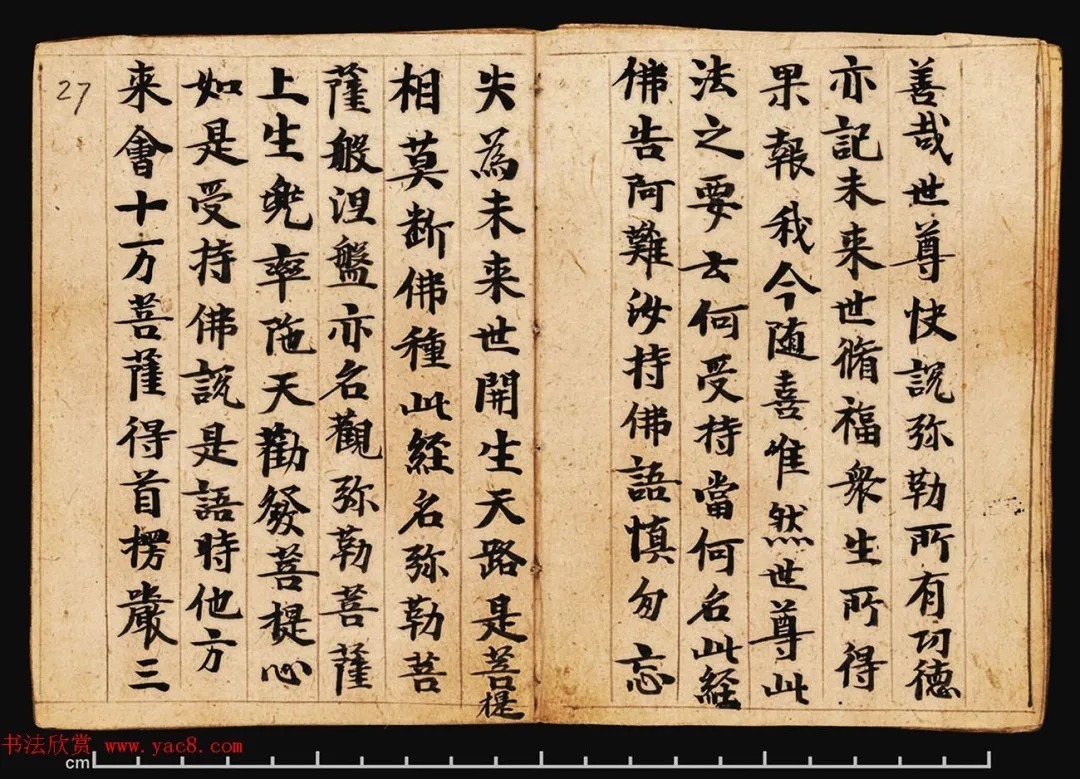 善哉世尊快說弥勒所有功德
亦記未来世脩福衆生所得
果報我今随喜唯然世尊此
法之要云何受持當何名此經
佛告阿難汝持佛語慎勿忘
失為未来世開生天路是菩提
相莫断佛種此經名弥勒菩
薩般涅盤亦名觀弥勒菩薩
上生兜率陁天勸發菩提心
如是受持佛說是語時他方
来會十万菩薩得首楞嚴三
27
书法欣赏 www.yac8.com
cm